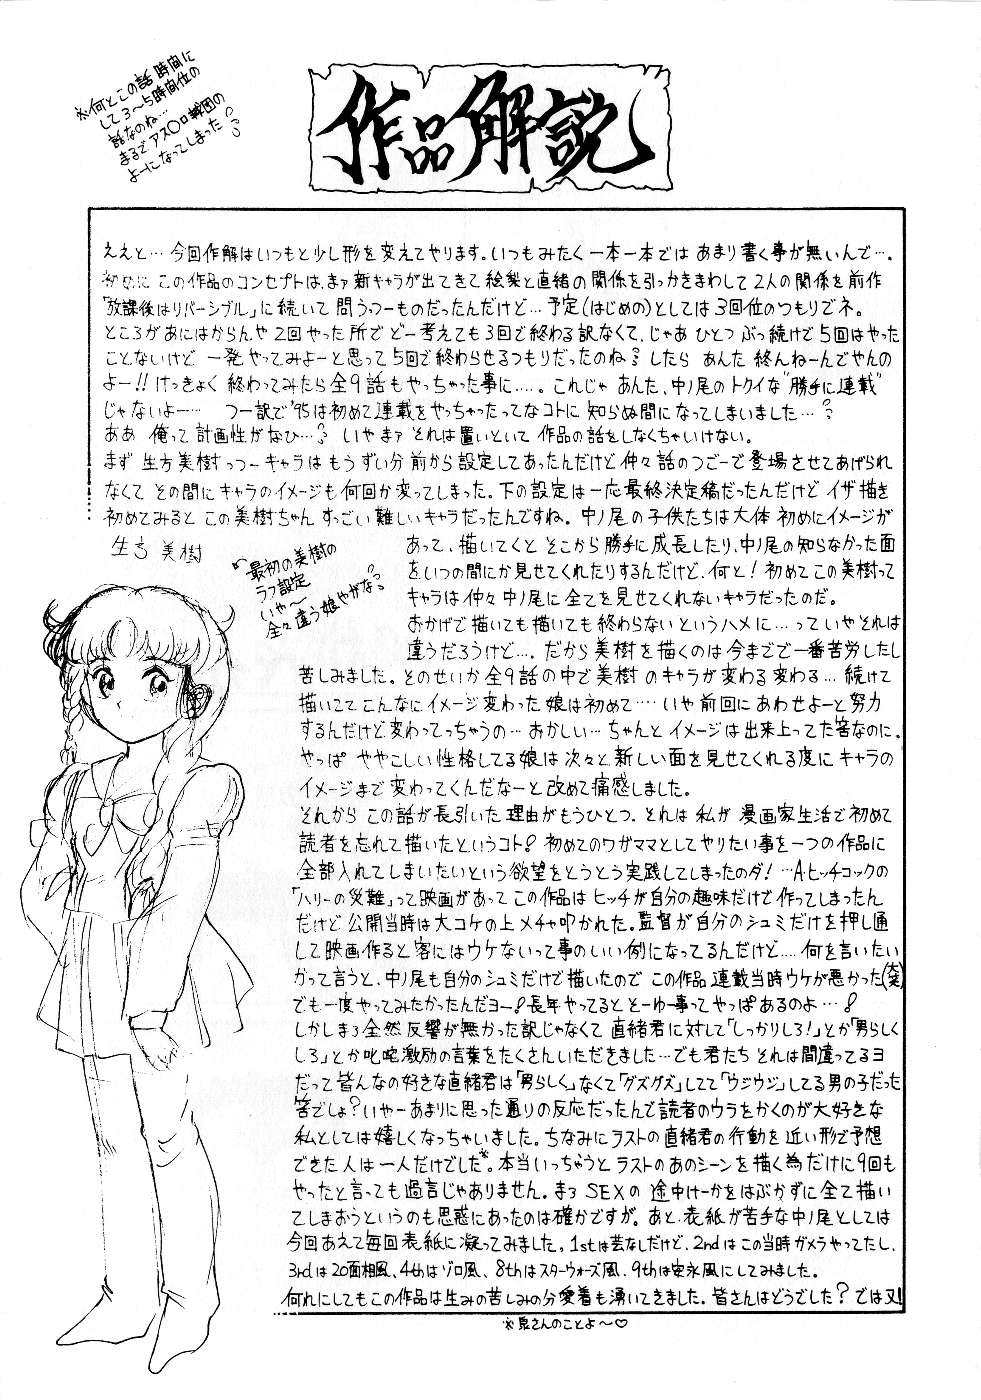 ※何とこの話 時間に
して3〜5時間位の
話なのね…
まるでアス〇ロ戦団の
よーになってしまった
作品解説
ええと… 今回作解はいつもと少し形を変えてやります。いつもみたく一本一本では あまり書く事が無いんで…。
初めに この作品のコンセプトは、まァ新キャラが出てきて絵梨と直緒の関係を引っかきまわして2人の関係を前作
「放課後はリバーシブル」に続いて問うつーものだったんだけど… 予定(はじめの)としては3回位のつもりでネ。
ところがあにはからんや2回やった所でどー考えても3回で終わる訳なくて、じゃあ ひとつ ぶっ続けで5回はやった
ことないけど 一発やってみよーと思って5回で終わらせるつもりだったのね? したら あんた 終んねーんでやんの
よー!! けっきょく 終わってみたら全9話もやっちゃった事に….。これじゃ あんた、中ノ尾のトクイな"勝手に連載"
じゃないよー… つー訳で'95は初めて連載をやっちゃったってなコトに 知らぬ間になってしまいました…?
ああ 俺って計画性がなひ…? いやまァ それは置いといて 作品の話をしなくちゃいけない。
まず 生方美樹っつーキャラはもうずい分前から設定してあったんだけど仲々話のつごーで登場させてあげられ
なくて その間にキャラのイメージも何回か変ってしまった。下の設定は一応最終決定稿だったんだけど イザ描き
初めてみると この美樹ちゃん すっごい難しいキャラだったんですね。中ノ尾の子供たちは大体 初めにイメージが
生方 美樹
最初の美樹の
ラフ設定
いや〜
全々違う娘やがな?
あって、描いてくと そこから勝手に成長したり、中ノ尾の知らなかった面
をいつの間にか見せてくれたりするんだけど、何と! 初めてこの美樹って
キャラは仲々 中ノ尾に全てを見せてくれないキャラだったのだ。
おかげで描いても描いても終わらない というハメに…って いや それは
違うだろうけど…. だから美樹を描くのは今までで一番苦労したし
苦しみました。そのせいか全9話の中で美樹のキャラが変わる変わる… 続けて
描いててこんなにイメージ変わった娘は初めて…. いや前回にあわせよーと努力
するんだけど変わってっちゃうの… おかしい… ちゃんとイメージは出来上ってた筈なのに。
やっぱ ややこしい性格してる娘は次々と新しい面を見せてくれる度にキャラの
イメージまで変わってくんだなーと改めて痛感しました。
それから この話が長引いた理由がもうひとつ. それは私が漫画家生活で初めて
読者を忘れて描いたというコト! 初めてのワガママとしてやりたい事を一つの作品に
全部入れてしまいたいという欲望をとうとう実践してしまったのダ! …A.ヒッチコックの
「ハリーの災難」って映画があって この作品は ヒッチが自分の趣味だけで作ってしまったん
だけど 公開当時は大コケの上メチャ叩かれた。監督が自分のシュミだけを押し通
して映画作ると客にはウケないって事のいい例になってるんだけど…. 何を言いたい
かって言うと、中ノ尾も自分のシュミだけで描いたので この作品 連載当時ウケが悪かった(大笑)
でも一度やってみたかったんだヨー! 長年やってるとそーゆー事ってやっぱあるのよ…!
しかしまう全然反響が無かった訳じゃなくて 直緒君に対して「しっかりしろ!」とか「男らしく
しろ」とか叱咤激励の言葉をたくさんいただきました…でも君たち それは間違ってるヨ
だって皆んなの好きな直緒君は「男らしく」なくて「グズグズ」してて「ウジウジ」してる男の子だった
筈でしょ? いやーあまりに思った通りの反応だったんで読者のウラをかくのが大好きな
私としては嬉しくなっちゃいました。ちなみにラストの直緒君の行動を近い形で予想
できた人は一人だけでした※。本当いっちゃうと ラストのあのシーンを描く為だけに9回も
やったと言っても過言じゃありません。まう SEXの途中けーかをはぶかずに全て描い
てしまおうというのも思惑にあったのは確かですが。あと、表紙が苦手な中ノ尾としては
今回あえて毎回表紙に凝ってみました。1stは芸なしだけど、2ndはこの当時ガメラやってたし、
3rdは20面相風、4thはゾロ風、8thはスターウォーズ風、9thは安永風にしてみました。
何れにしてもこの作品は生みの苦しみの分愛着も湧いてきました。皆さんはどうでした? では又!
※泉さんのことよ〜♡